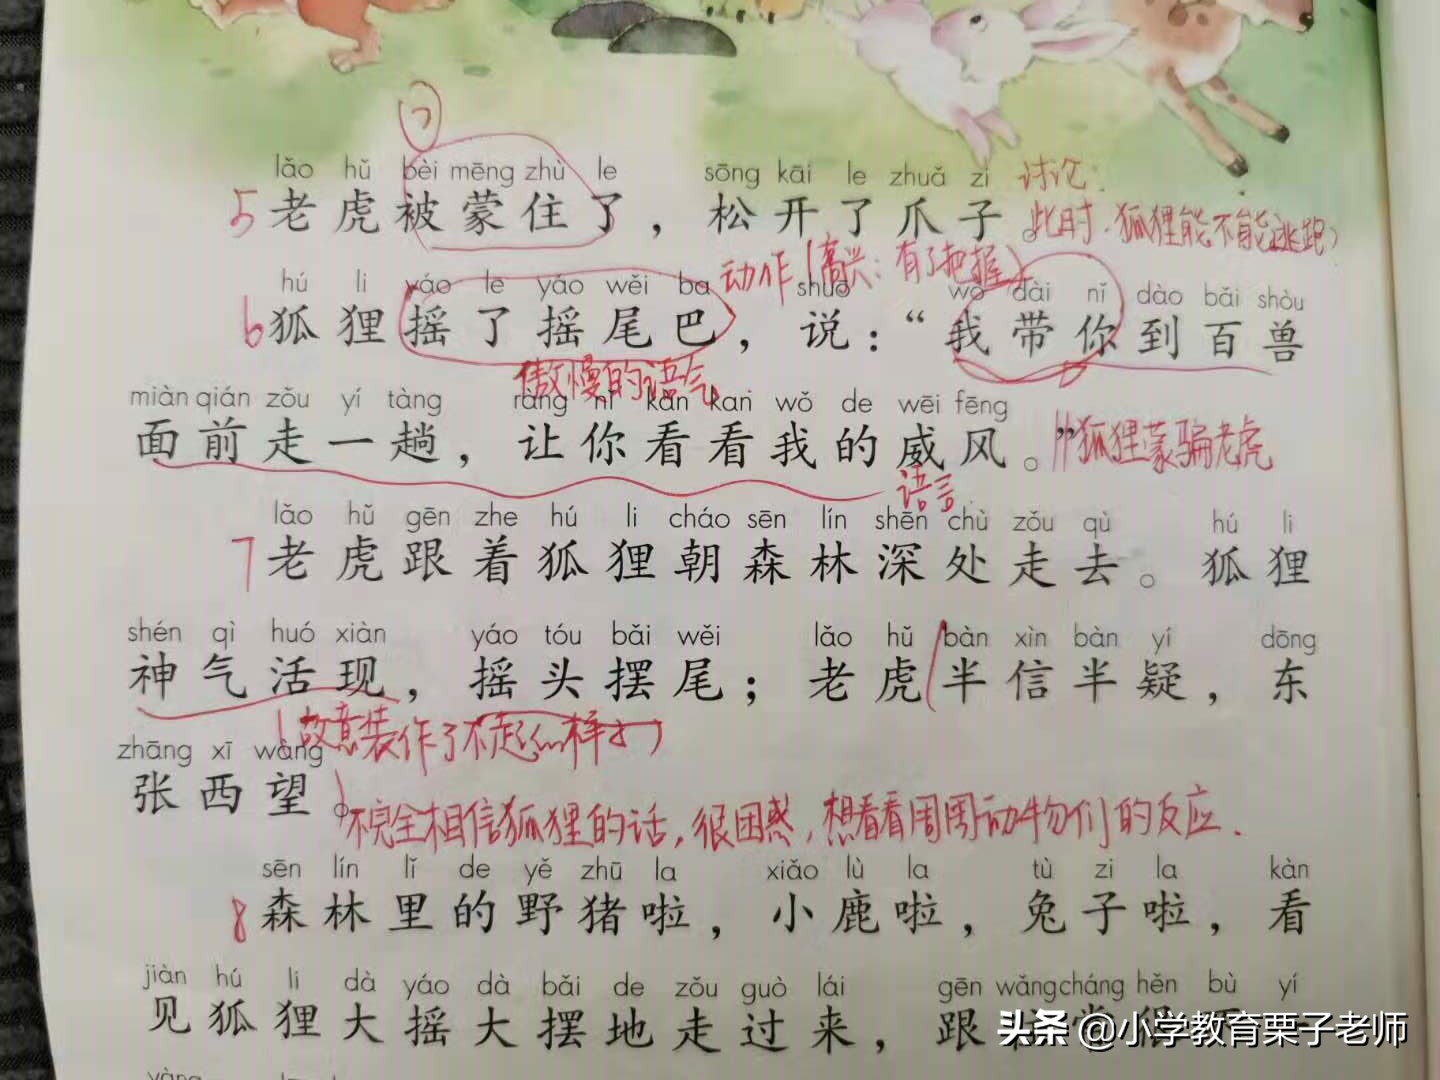 lǎo hǔ bèi mēng zhù le sōng kāi le zhuǎ zi 讨论：
5 老虎被蒙住了，松开了爪子。此时，狐狸能不能逃跑？
动作（高兴：有了把握）
hú li yáo le yáo wěi ba shuō wǒ dài nǐ dào bǎi shòu
6 狐狸摇了摇尾巴，说：“我带你到百兽
傲慢的语气
miàn qián zǒu yí tàng ràng nǐ kàn kan wǒ de wēi fēng
面前走一趟，让你看看我的威风。” 狐狸蒙骗老虎
语言
lǎo hǔ gēn zhe hú li cháo sēn lín shēn chù zǒu qù hú li
7 老虎跟着狐狸朝森林深处走去。狐狸
shén qì huó xiàn yáo tóu bǎi wěi lǎo hǔ bàn xìn bàn yí dōng
神气活现，摇头摆尾；老虎半信半疑，东
故意装作了不起的样子
zhāng xī wàng
张西望。
不完全相信狐狸的话，很困惑，想看看周围动物们的反应．
sēn lín lǐ de yě zhū la xiǎo lù la tù zi la kàn
8 森林里的野猪啦，小鹿啦，兔子啦，看
jiàn hú li dà yáo dà bǎi de zǒu guò lái gēn wǎng cháng hěn bù yí
见狐狸大摇大摆地走过来，跟
头条 @小学教育栗子老师
yàng